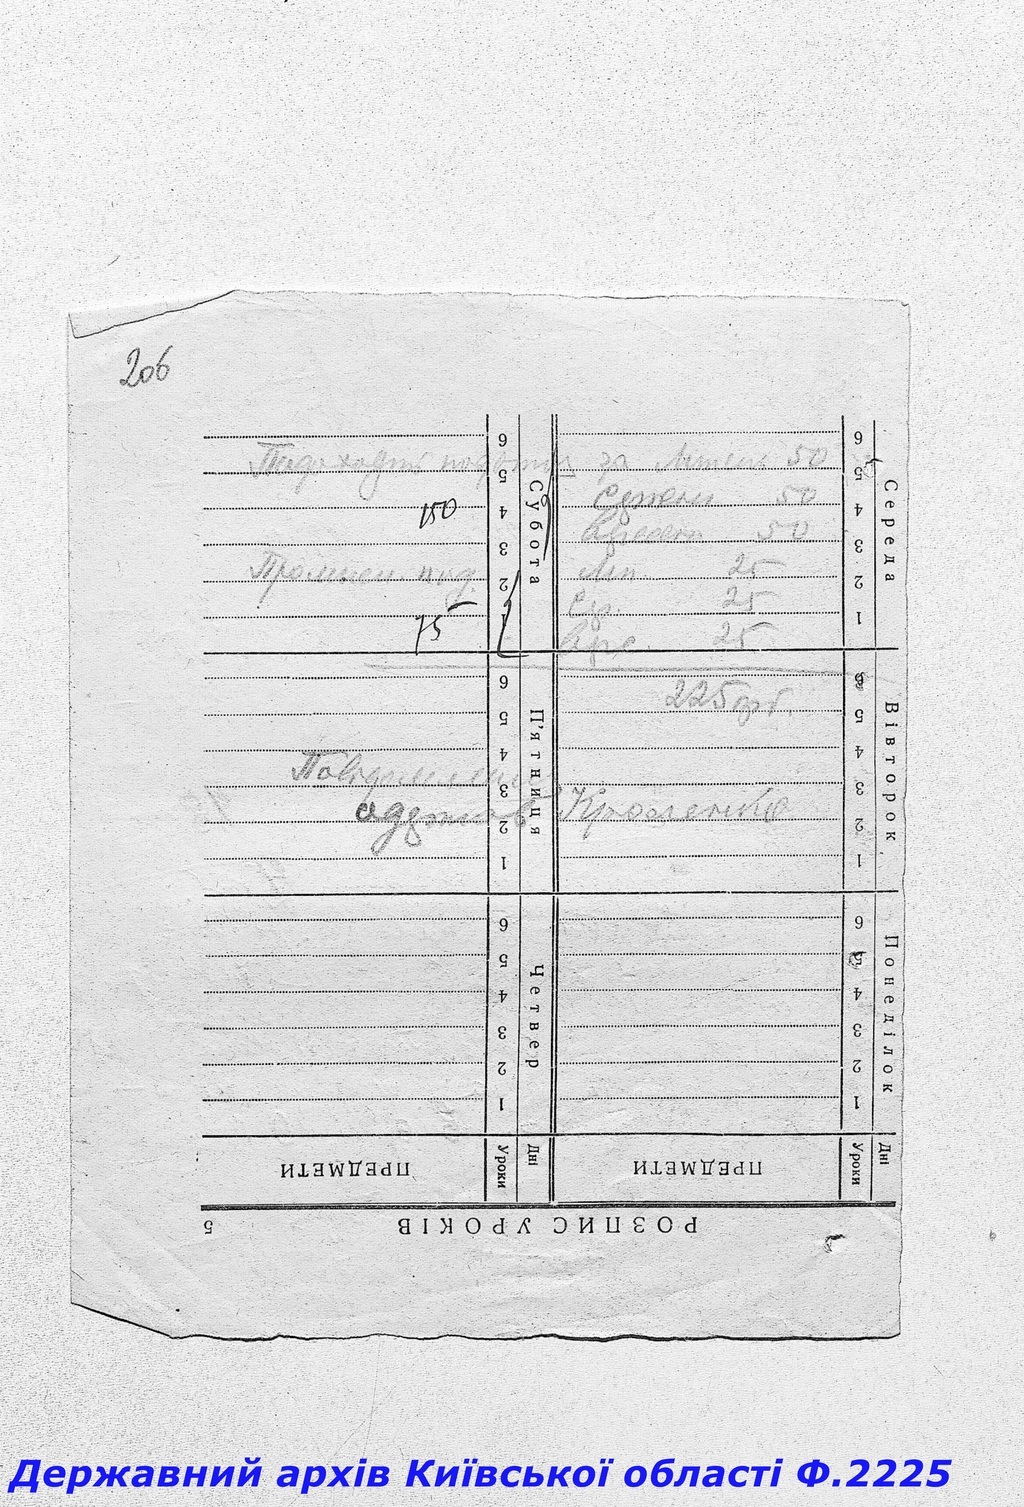 206
Подоходні податки за Липень 50
150 Серпень 50
Вресень 50
Промисл. под. Лип. 25
Сер. 25
75 Врес. 25
225
Повідомлення
РОЗПИС УРОКІВ
5
Дні Уроки ПРЕДМЕТИ Дні Уроки ПРЕДМЕТИ
Понеділок
1
2
3
4
5
6
Вівторок
1
2
3
4
5
6
Середа
1
2
3
4
5
6
Четвер
1
2
3
4
5
6
П'ятниця
1
2
3
4
5
6
Субота
1
2
3
4
5
6
Державний архів Київської області Ф.2225